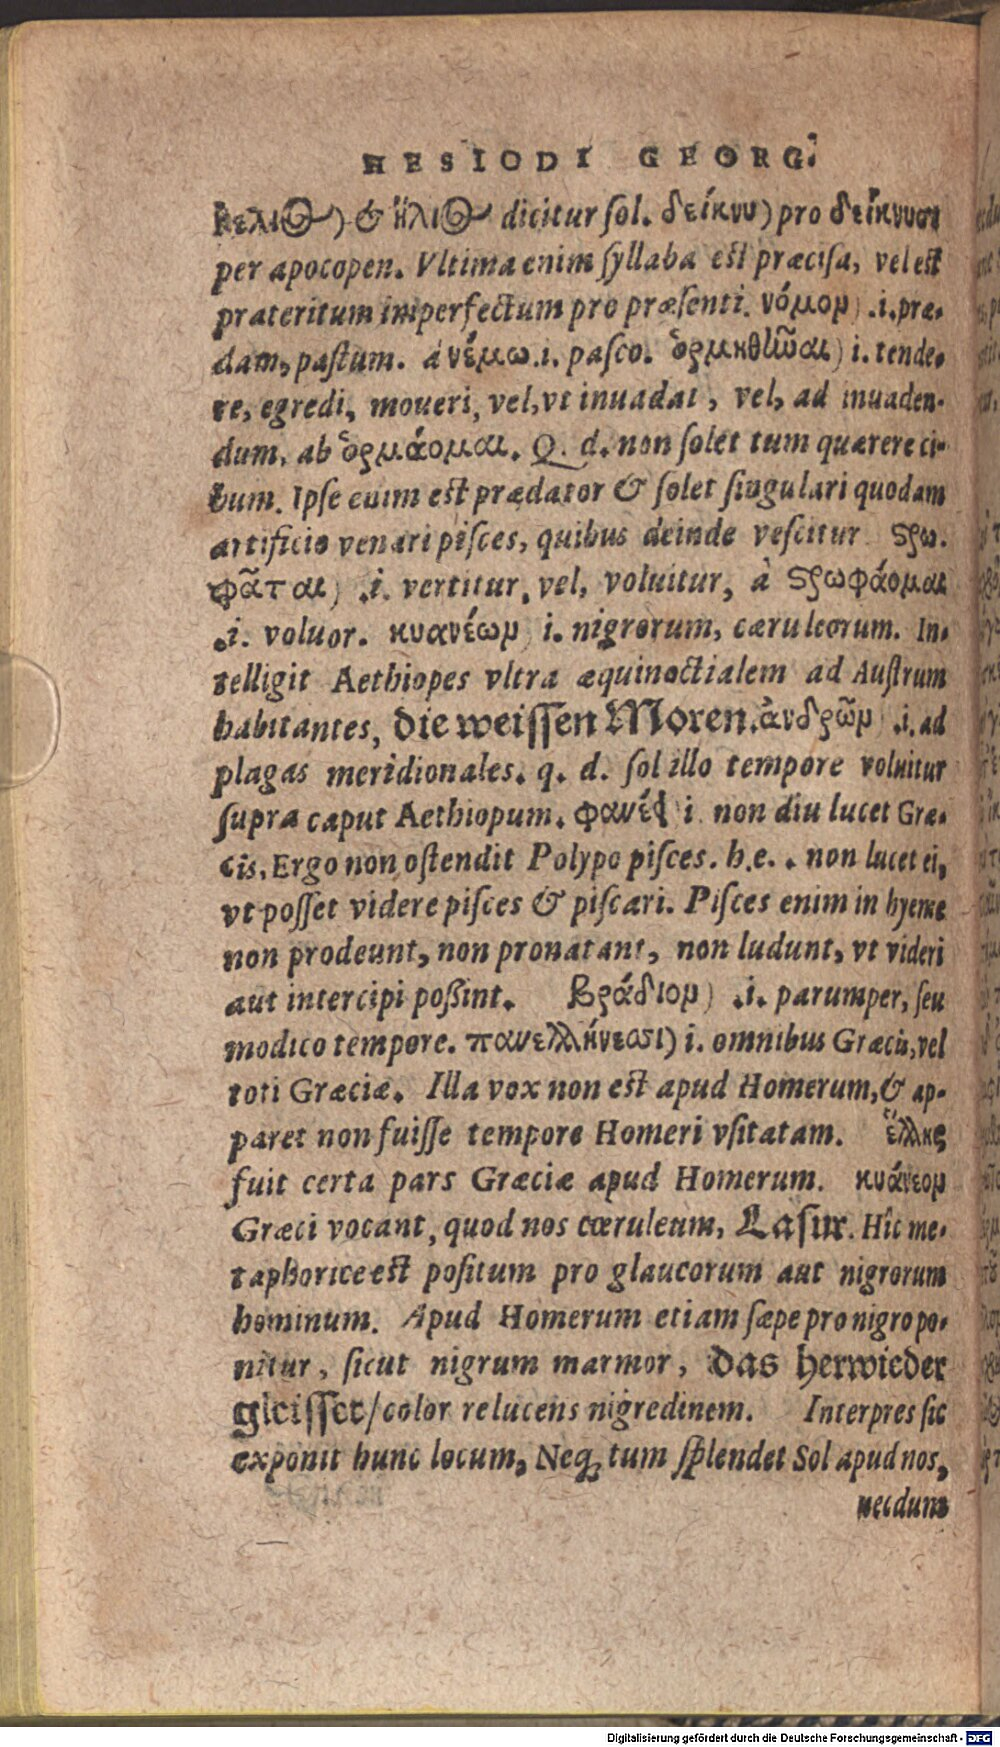 HESIODI GEORG.
ἠέλιος) & ἥλιος dicitur sol. δείκνυ) pro δείκνυσι
per apocopen. Vltima enim syllaba est præcisa, vel est
præteritum imperfectum pro præsenti. νόμον) .i. præ-
dam, pastum. à νέμω .i. pasco. ὁρμηθῆναι) i. tende-
re, egredi, moueri, vel, vt inuadat, vel, ad inuaden-
dum, ab ὁρμάομαι. Q. d. non solet tum quærere ci-
bum. Ipse enim est prædator & solet singulari quodam
artificio venari pisces, quibus deinde vescitur στρω-
φᾶται) .i. vertitur, vel, voluitur, à στρωφάομαι
.i. voluor. κυανέων i. nigrorum, cæruleorum. In-
telligit Aethiopes vltra æquinoctialem ad Austrum
habitantes, die weissen Moren. ἀνδρῶν) .i. ad
plagas meridionales. q. d. sol illo tempore voluitur
supra caput Aethiopum. φανεῖ i. non diu lucet Græ-
cis, Ergo non ostendit Polypo pisces. h.e. . non lucet ei,
vt posset videre pisces & piscari. Pisces enim in hyeme
non prodeunt, non pronatant, non ludunt, vt videri
aut intercipi poßint. βράδιον) .i. parumper, seu
modico tempore. πανελλήνεσσι) i. omnibus Græcis, vel
toti Græciæ. Illa vox non est apud Homerum, & ap-
paret non fuisse tempore Homeri vsitatam. ἕλλης
fuit certa pars Græciæ apud Homerum. κυάνεον
Græci vocant, quod nos cœruleum, Lasur. Hîc me-
taphorice est positum pro glaucorum aut nigrorum
hominum. Apud Homerum etiam sæpe pro nigro po-
nitur, sicut nigrum marmor, das herwieder
gleisset/ color relucens nigredinem. Interpres sic
exponit hunc locum, Neq; tum splendet Sol apud nos,
necdum
Digitalisierung gefördert durch die Deutsche Forschungsgemeinschaft - DFG